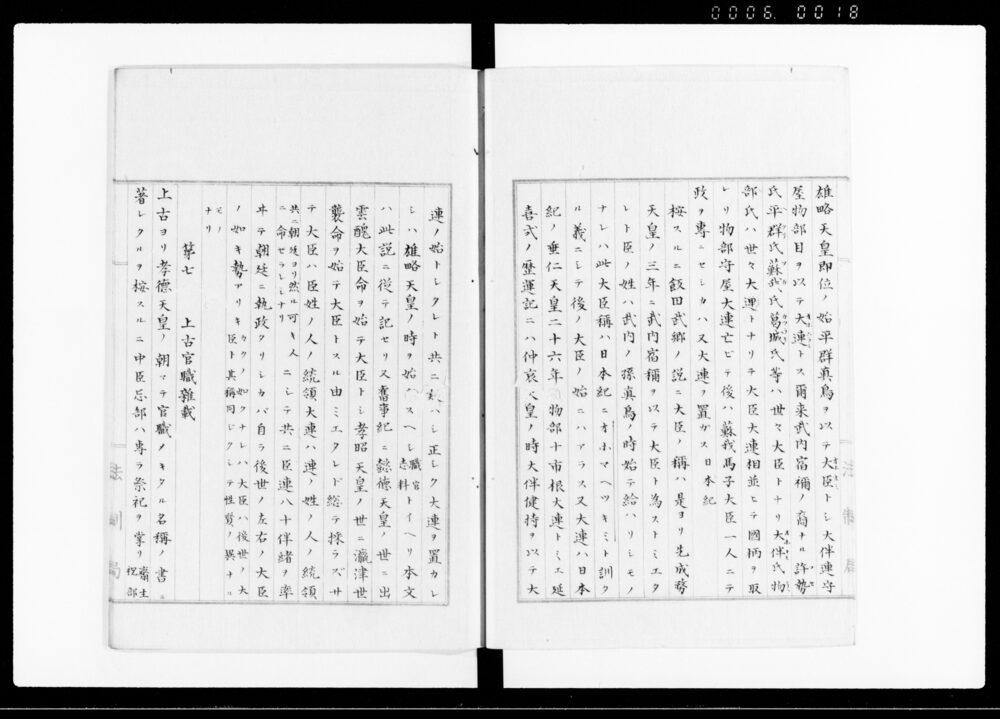 0006.0018
雄略天皇即位ノ始平群真鳥ヲ以テ大臣トシ大伴連守
屋物部目ヲ以テ大連トス爾来武内宿禰ノ裔ナル許勢
氏平群氏蘇我氏葛城氏等ハ世々大臣トナリ大伴氏物
部氏ハ世々大連トナリテ大臣大連相並ヒテ國柄ヲ取
レリ物部守屋大連亡ビテ後ハ蘇我馬子大臣一人ニテ
政ヲ專ニセシカハ又大連ヲ置カス 日本紀
桉スルニ飯田武郷ノ説ニ大臣ノ稱ハ是ヨリ先成務
天皇ノ三年ニ武内宿禰ヲ以テ大臣ト為ストミエタ
レト臣ノ姓ハ武内ノ孫真鳥ノ時始テ給ハリシモノ
ナレハ此大臣稱ハ日本紀ニオホマヘツキミト訓ク
ル義ニシテ後ノ大臣ノ始ニハアラス又大連ハ日本
紀ノ垂仁天皇二十六年ノ物部十市根大連トミエ延
喜式ノ歴運記ニハ仲哀天皇ノ時大伴健持ヲ以テ大
連ノ始トシクレト共ニ ハシ正シク大連ヲ置カレ
シハ雄略天皇ノ時ヲ始ハスヘシ 職官志料 トイヘリ本文
ハ此説ニ從テ記セリ又舊事紀ニ懿德天皇ノ世ニ出
雲醜大臣命ヲ始テ大臣トシ孝昭天皇ノ世ニ瀛津世
襲命ヲ始テ大臣トスル由ミエタレド總テ採ラズサ
テ大臣ハ臣姓ノ人ノ統領大連ハ連ノ姓ノ人ノ統領
共ニ朝廷ヨリ然ル可キ人ニ命セラレシナリ ニシテ共ニ臣連八十伴緒ヲ率
ヰテ朝廷ニ執政クリシカバ自ラ後世ノ左右ノ大臣
ノ如キ勢アリキ カクノ如クナレハ大臣ハ後世ノ大臣ト其稱同ジクシテ性質ノ異ナル
モノナリ
第七 上古官職雜載
上古ヨリ孝德天皇ノ朝マテ官職ノキタル名稱ノ書ニ
著レクルヲ桉スルニ中臣忌部ハ專ラ祭祀ヲ掌リ 齋主祝部
法制局
法制局